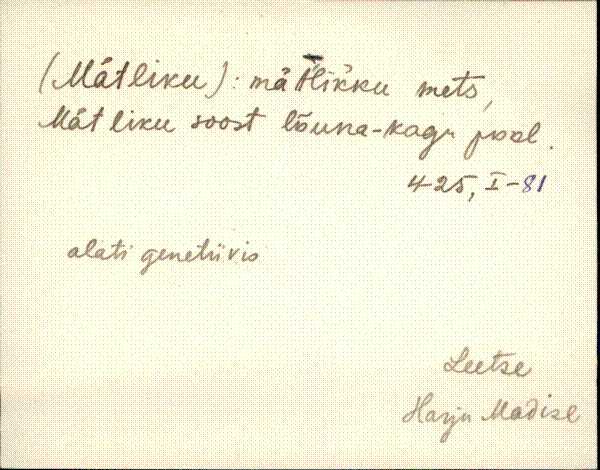 (Mätliku): mätlikku mets,
Mätliku soost lõuna-kagu pool.
425, I-81
alati genetiivis
Leetse
Harju Madise